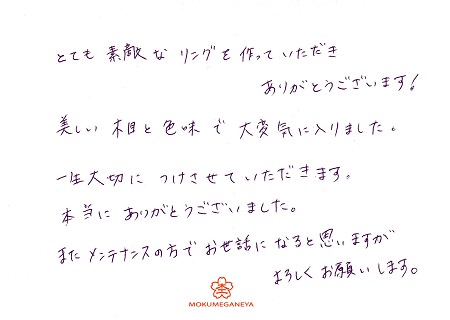 とても 素敵な リングを 作っていただき
ありがとうございます!
美しい 木目と 色味で 大変気に入りました。
一生大切に つけさせていただきます。
本当に ありがとうございました。
また メンテナンスの方で お世話に なると思いますが
よろしく お願いします。
MOKUMEGANEYA